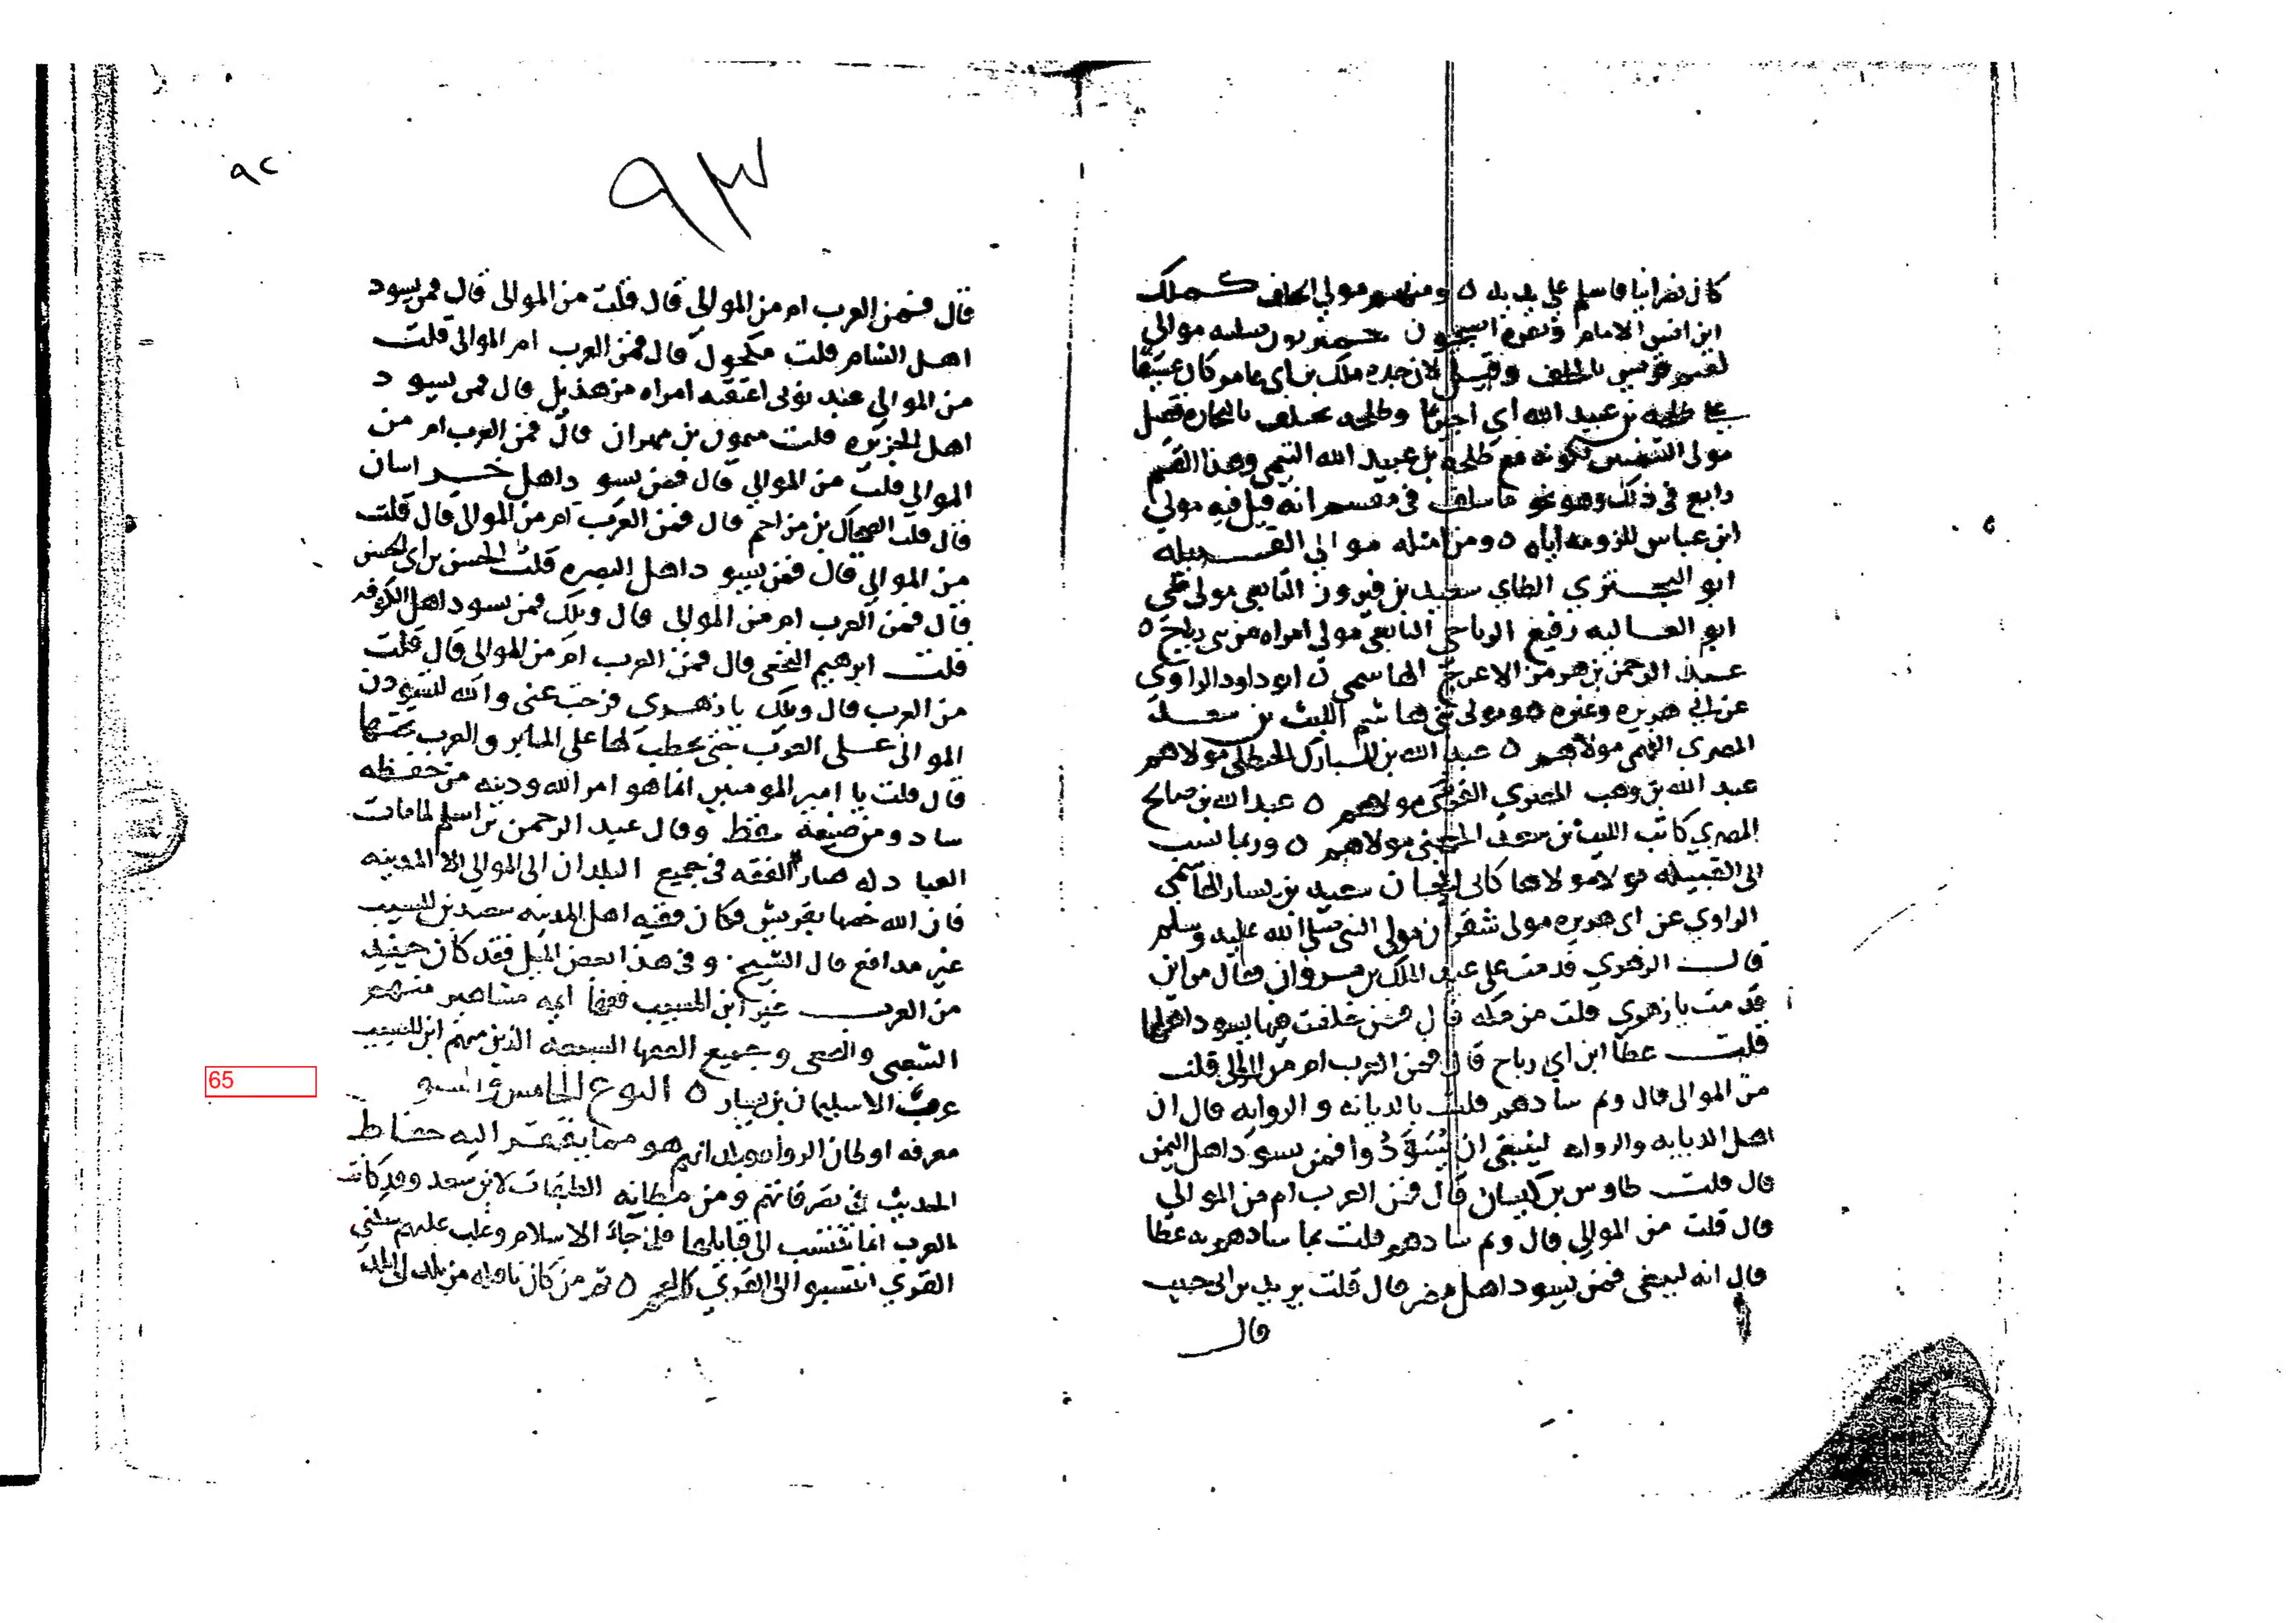 كان نصرانيا فاسلم علي يديه ٥ ومنهم مولي الحلف كملك
ابن انس الامام ونفره اصبحيون حميريون صليبه موالي
لتيم قريش بالحلف وقيل لان جده ملك بن ابي عامر كان عسيفا
علي طلحه بن عبيد الله اي اجيرا وطلحه يختلف بالتجاره فقيل
مولي التيميين لكونه مع طلحه بن عبيد الله التيمي وهذا القسم
رابع في ذلك وهو نحو ما سلف في مقسم انه قيل فيه مولي
ابن عباس للزومه اياه ٥ ومن امثله موالي القبيله
ابو البختري الطاي سعيد بن فيروز التابعي مولي طي
ابو العاليه رفيع الرياحي التابعي مولي امراه من بني رياح ٥
عبد الرحمن بن هرمز الاعرج الهاشمي ابو داود الراوي
عن ابي هريره وغيره هو مولي بني هاشم الليث بن سعد
المصري الفهمي مولاهم ٥ عبد الله بن المبارك الحنظلي مولاهم
عبد الله بن وهب المصري القرشي مولاهم ٥ عبد الله بن صالح
المصري كاتب الليث بن سعد الجهني مولاهم ٥ وربما نسب
الي القبيله مولا مولاها كابي الحباب سعيد بن يسار الهاشمي
الراوي عن ابي هريره مولي شقران مولي النبي صلي الله عليه وسلم
قال الزهري قدمت علي عبد الملك بن مروان فقال من اين
قدمت يا زهري قلت من مكه قال فمن خلفت بها يسود اهلها
قلت عطا ابن ابي رباح قال فمن العرب ام من الموالي قلت
من الموالي قال وبم سادهم قلت بالديانه والروايه قال ان
اهل الديانه والروايه لينبغي ان يُسَوَّدُوا فمن يسود اهل اليمن
قال قلت طاوس بن كيسان قال فمن العرب ام من الموالي
قال قلت من الموالي قال وبم سادهم قلت بما سادهم به عطا
قال انه لينبغي فمن يسود اهل مصر قال قلت يزيد بن ابي حبيب
قال
٩٢
٩٣
قال فمن العرب ام من الموالي قال قلت من الموالي قال فمن يسود
اهل الشام قلت مكحول قال فمن العرب ام الموالي قلت
من الموالي عبد نوبي اعتقته امراه من هذيل قال فمن يسود
اهل الجزيره قلت ميمون بن مهران قال فمن العرب ام من
الموالي قلت من الموالي قال فمن يسود اهل خراسان
قال قلت الضحاك بن مزاحم قال فمن العرب ام من الموالي قال قلت
من الموالي قال فمن يسود اهل البصره قلت الحسن بن ابي الحسن
قال فمن العرب ام من الموالي قال ويلك فمن يسود اهل الكوفه
قلت ابرهيم النخعي قال فمن العرب ام من الموالي قال قلت
من العرب قال ويلك يا زهري فرجت عني والله لتسودن
الموالي علي العرب حتي يخطب لها علي المنابر والعرب تحتها
قال قلت يا امير المومنين انما هو امر الله ودينه من حفظه
ساد ومن ضيعه سقط وقال عبد الرحمن بن اسلم لما مات
العبادله صار الفقه في جميع البلدان الي الموالي الا المدينه
فان الله خصها بقرشي فكان فقيه اهل المدينه سعيد بن المسيب
غير مدافع قال الشيخ وفي هذا بعض الميل فقد كان حينيذ
من العرب غير ابن المسيب فقها ايمه مشاهير منهم
الشعبي والنخعي وجميع الفقها السبعه الذين منهم ابن المسيب
عرب الا سليمان بن يسار ٥ النوع الخامس والستو
معرفه اوطان الرواه وبلدانهم هو مما يفتقر اليه حفاظ
الحديث في تصرفاتهم ومن مظانه الطبقات لابن سعد وقد كانت
العرب انما تنتسب الي قبايلها فلما جاء الاسلام وغلب عليهم سكني
القري انتسبوا الي القري كالعجم ٥ ثم من كان ناقله من بلد الي بلد
65